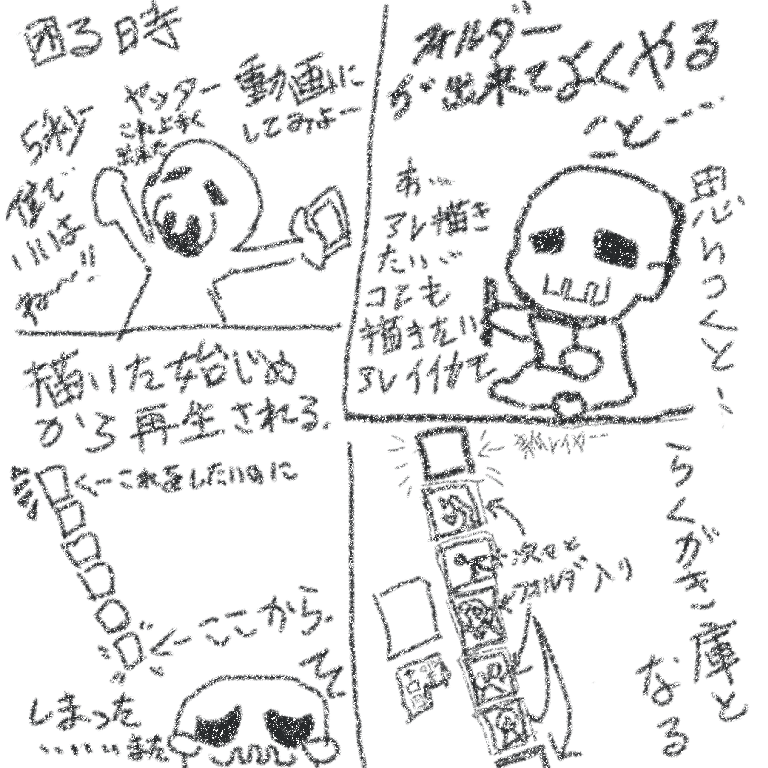 困る時
ヤッター
これ上手く
出来た
動画に
してみよー
5秒
位で
いいよ
ね〜!!
フォルダー
が出来てよくやる
あ…
アレ描き
たい…
コレも
描きたい
アレイイな
と…
思いつくと…
らくがき
庫と
なる
描いた始じめ
から再生される。
←これをしたいのに
←ここから。
しまった
……また
レイヤー
次々と
フォルダ入り